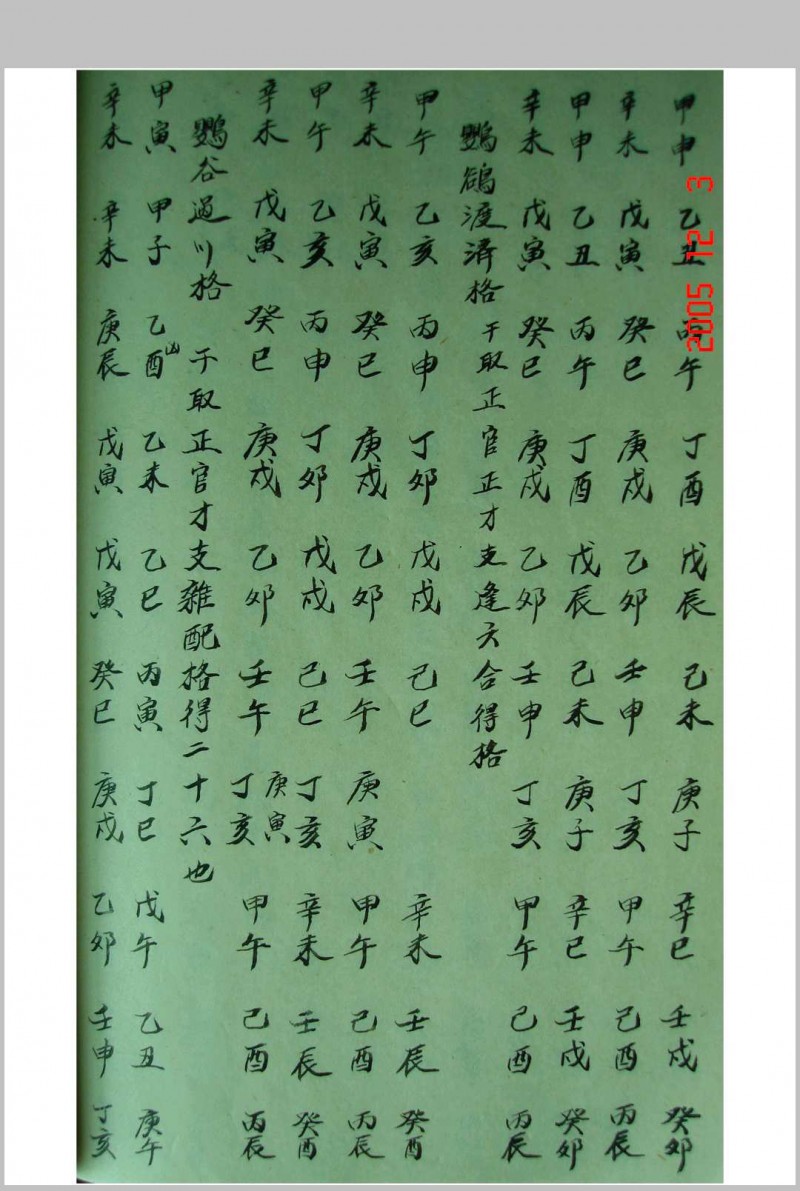 甲申 乙丑 丙午 丁酉 戊辰 己未 庚子 辛巳 壬戌 癸卯
辛未 戊寅 癸巳 庚戌 乙卯 壬申 丁亥 甲午 己酉 丙辰
甲申 乙丑 丙午 丁酉 戊辰 己未 庚子 辛巳 壬戌 癸卯
辛未 戊寅 癸巳 庚戌 乙卯 壬申 丁亥 甲午 己酉 丙辰
鸚鴿渡濟格 干取正官正才支逢六合得格
甲午 乙亥 丙申 丁卯 戊戌 己巳 辛未 壬辰 癸酉
辛未 戊寅 癸巳 庚戌 乙卯 壬午 庚寅 甲午 己酉 丙辰
甲午 乙亥 丙申 丁卯 戊戌 己巳 丁亥 辛未 壬辰 癸酉
庚寅
辛未 戊寅 癸巳 庚戌 乙卯 壬午 丁亥 甲午 己酉 丙辰
鸚谷過川格 干取正官才支雜配格得二十六也
甲寅 甲子 乙酉 凶 乙未 乙巳 丙寅 丁巳 戊午 乙丑 庚午
辛未 辛未 庚辰 戊寅 戊寅 癸巳 庚戌 乙卯 壬申 丁亥
2005 12 3